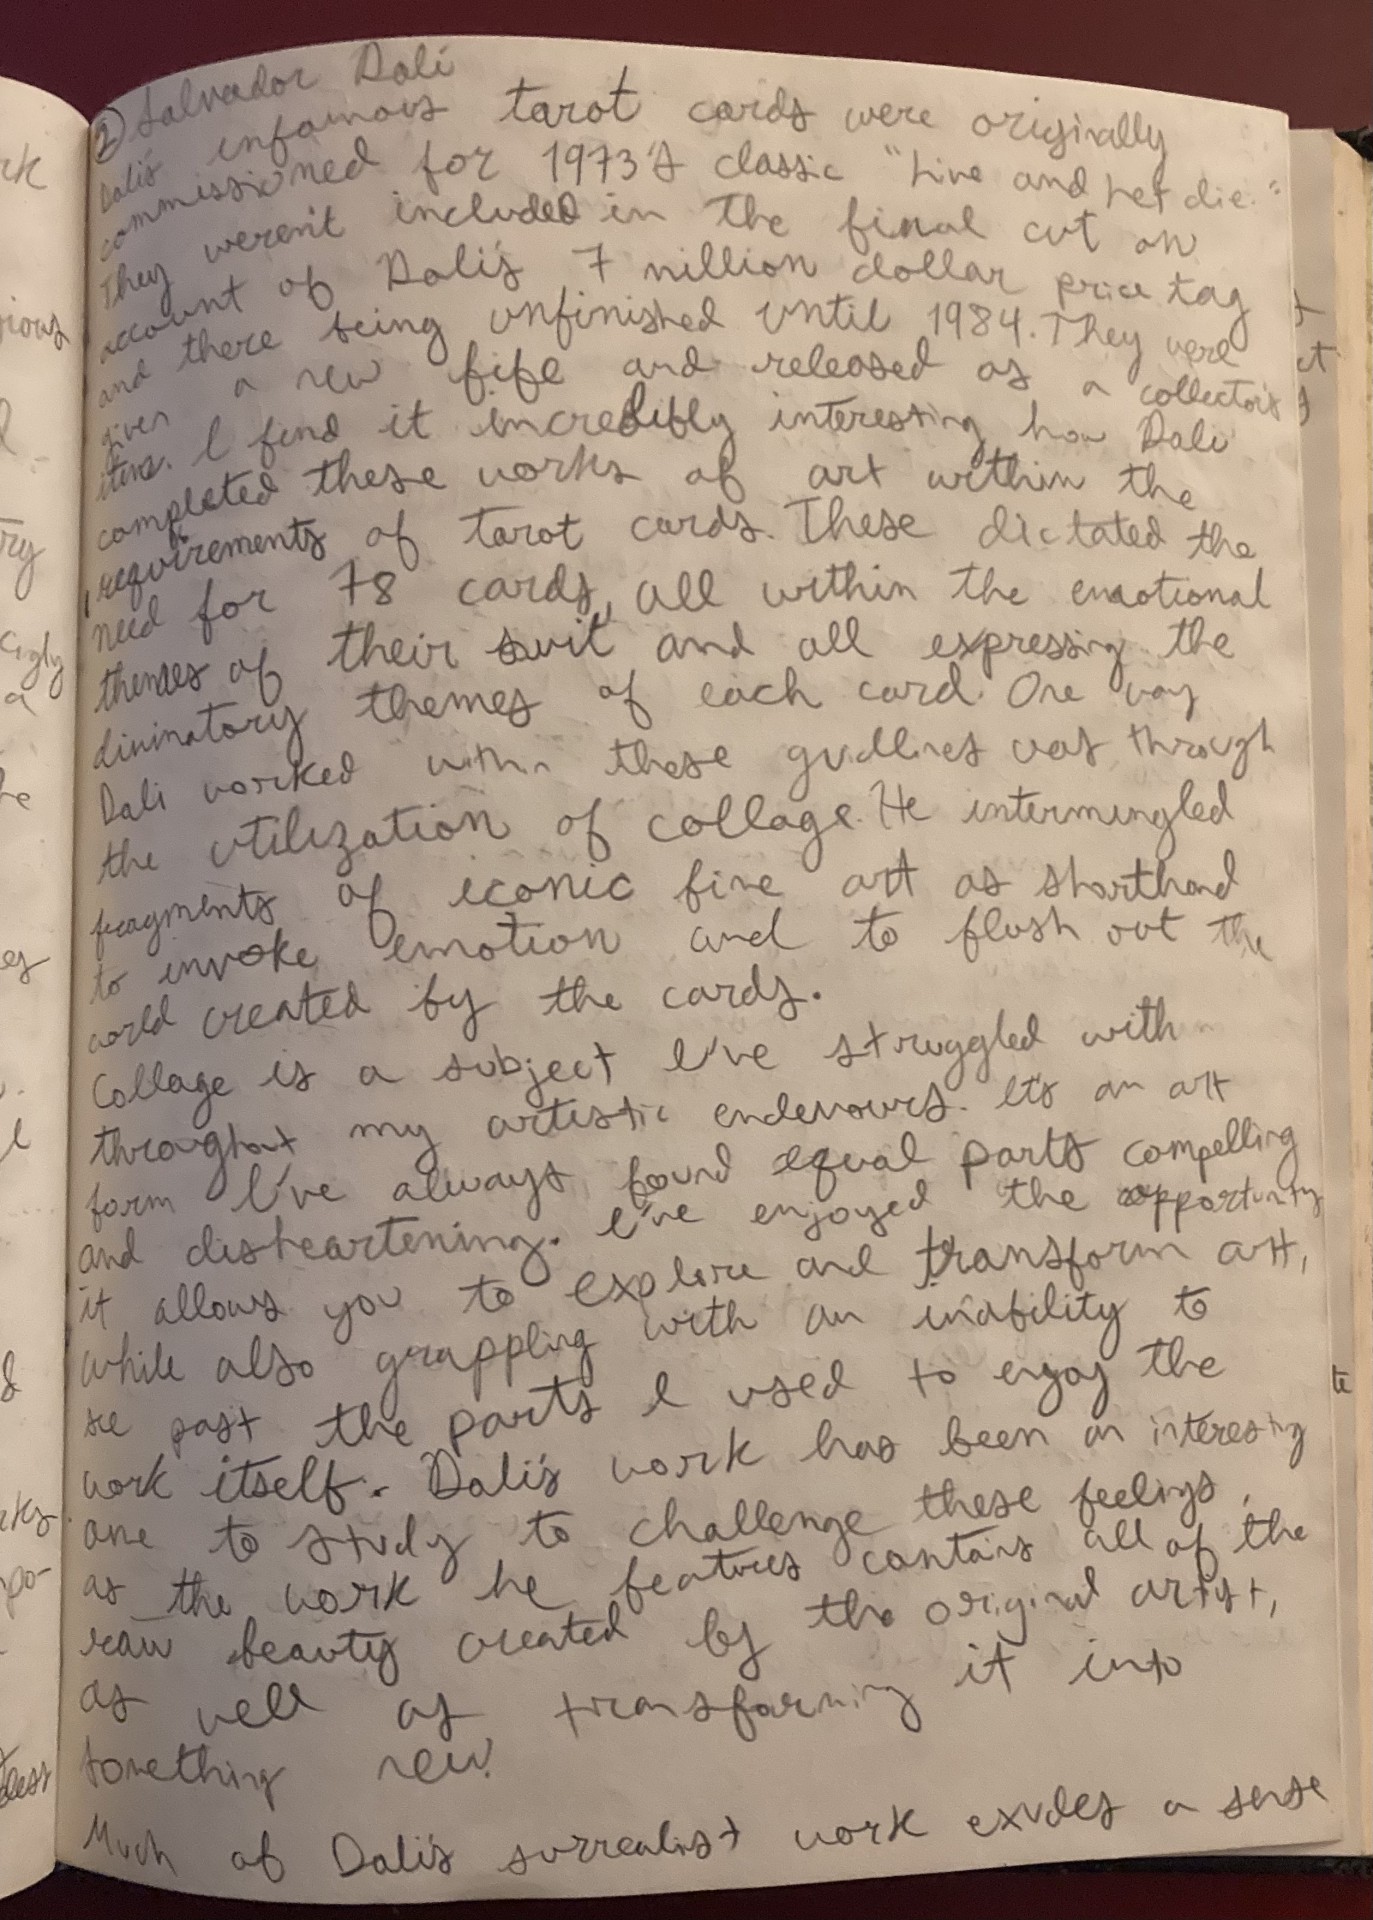 ② Salvador Dali
Dali's infamous tarot cards were originally
commissioned for 1973's classic "Live and Let die."
They weren't included in the final cut on
account of Dali's 7 million dollar price tag
and there being unfinished until 1984. They were
given a new fife and released as a collector's
item. I find it incredibly interesting how Dali
completed these works of art within the
requirements of tarot cards. These dictated the
need for 78 cards, all within the emotional
themes of their suit and all expressing the
divinatory themes of each card. One way
Dali worked within these guidlines was through
the utilization of collage. He intermingled
fragments of iconic fine art as shorthand
to invoke emotion and to flush out the
world created by the cards.
Collage is a subject I've struggled with
throughout my artistic endevours. It's an art
form I've always found equal parts compelling
and disheartening. I've enjoyed the opportunity
it allows you to explore and transform art,
while also grappling with an inability to
see past the parts I used to enjoy the
work itself. Dali's work has been an interesting
one to study to challenge these feelings,
as the work he features contains all of the
raw beauty created by the original artist,
as well as transforming it into
something new.
Much of Dali's surrealist work exudes a sense
rk
ious
ry
a
he
es
l
rks
po-
te